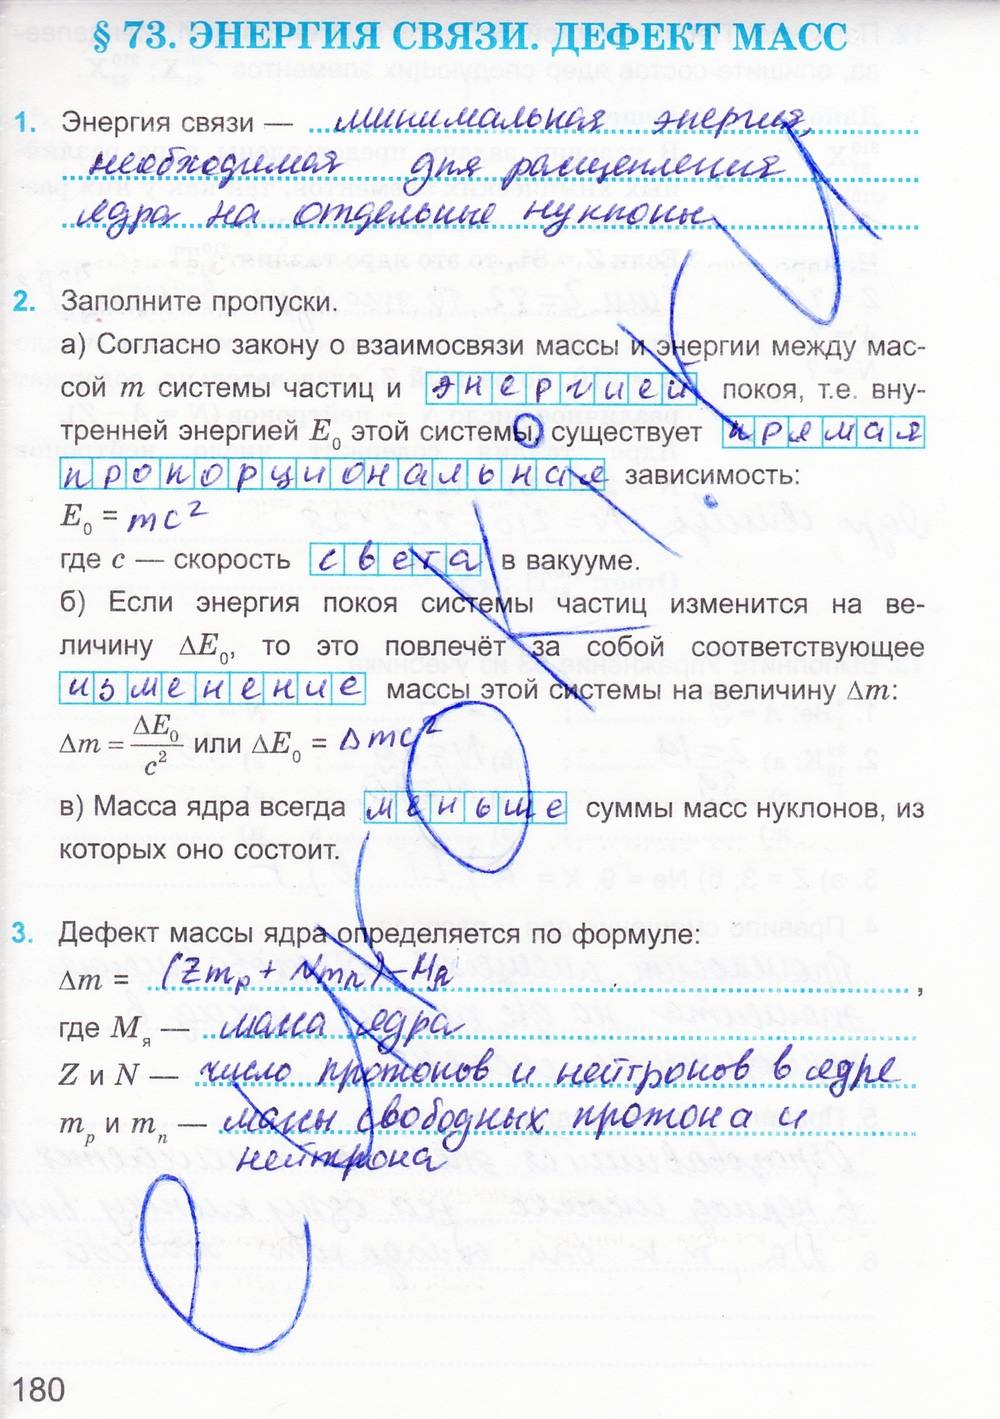 § 73. ЭНЕРГИЯ СВЯЗИ. ДЕФЕКТ МАСС
1. Энергия связи — минимальная энергия,
необходимая для расщепления
ядра на отдельные нуклоны
2. Заполните пропуски.
а) Согласно закону о взаимосвязи массы и энергии между мас-
сой m системы частиц и энергией покоя, т.е. вну-
тренней энергией E₀ этой системы, существует прямая
пропорциональная зависимость:
E₀ = mc²
где c — скорость света в вакууме.
б) Если энергия покоя системы частиц изменится на ве-
личину ΔE₀, то это повлечёт за собой соответствующее
изменение массы этой системы на величину Δm:
Δm = ΔE₀/c² или ΔE₀ = Δmc²
в) Масса ядра всегда меньше суммы масс нуклонов, из
которых оно состоит.
3. Дефект массы ядра определяется по формуле:
Δm = (Zmₚ + Nmₙ) − Mя ,
где Mя — масса ядра
Z и N — число протонов и нейтронов в ядре
mₚ и mₙ — массы свободных протона и
нейтрона
180